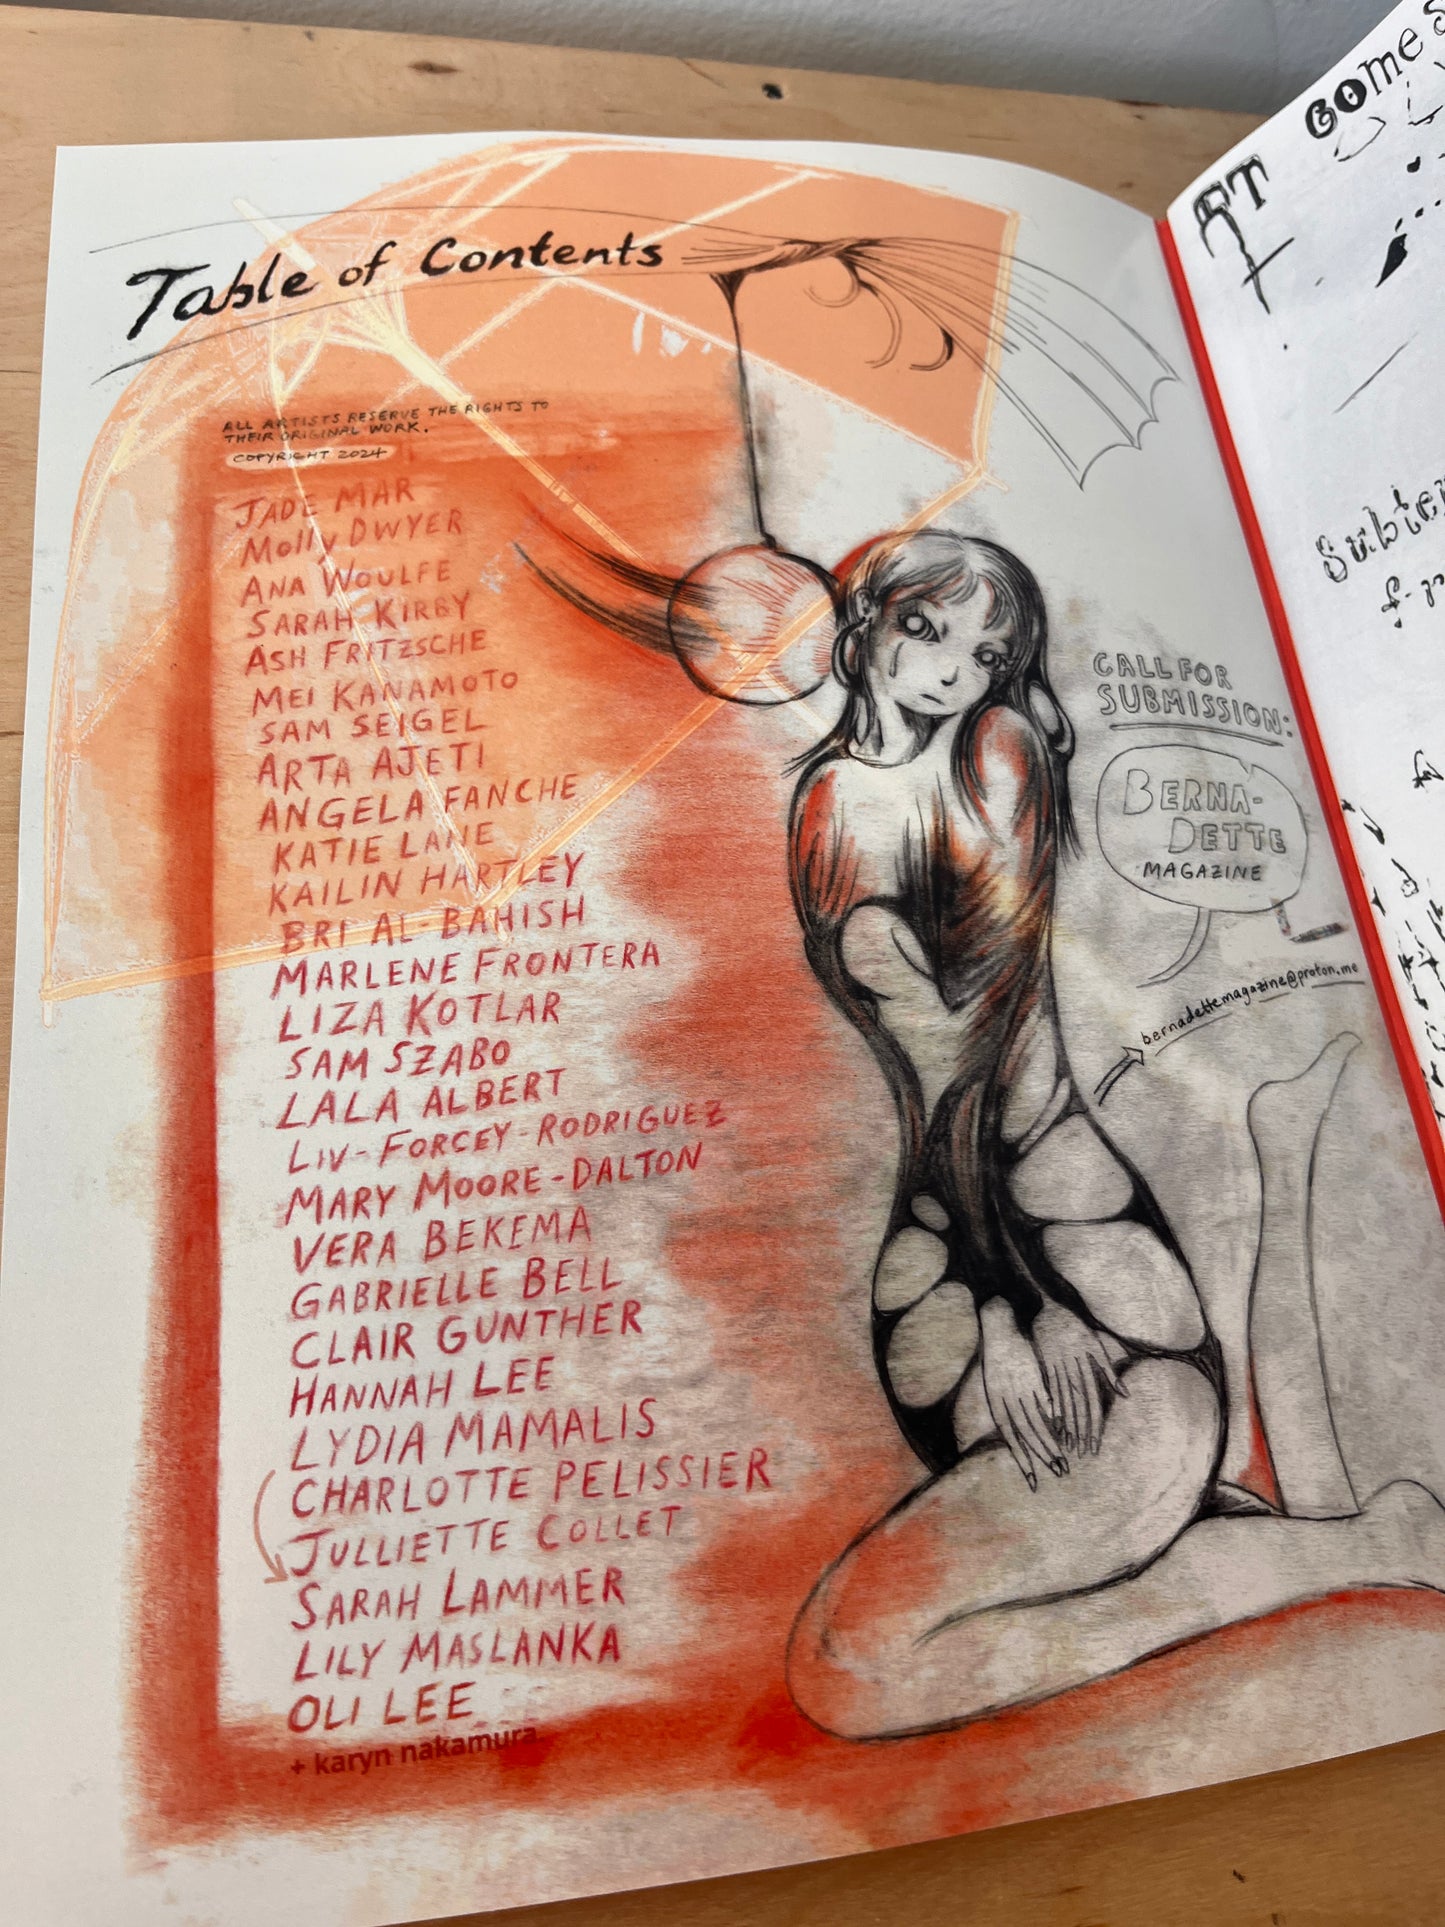 Table of Contents
ALL ARTISTS RESERVE THE RIGHTS TO
THEIR ORIGINAL WORK.
COPYRIGHT 2024
JADE MAR
Molly DWYER
ANA WOULFE
SARAH KIRBY
ASH FRITZSCHE
MEI KANAMOTO
SAM SEIGEL
ARTA AJETI
ANGELA FANCHE
KATIE LANE
KAILIN HARTLEY
BRI AL-BAHISH
MARLENE FRONTERA
LIZA KOTLAR
SAM SZABO
LALA ALBERT
LIV-FORCEY-RODRIGUEZ
MARY MOORE-DALTON
VERA BEKEMA
GABRIELLE BELL
CLAIR GUNTHER
HANNAH LEE
LYDIA MAMALIS
CHARLOTTE PELISSIER
JULLIETTE COLLET
SARAH LAMMER
LILY MASLANKA
OLI LEE
+ karyn nakamura
CALL FOR
SUBMISSION:
BERNA-
DETTE
MAGAZINE
bernadettemagazine@proton.me
IT